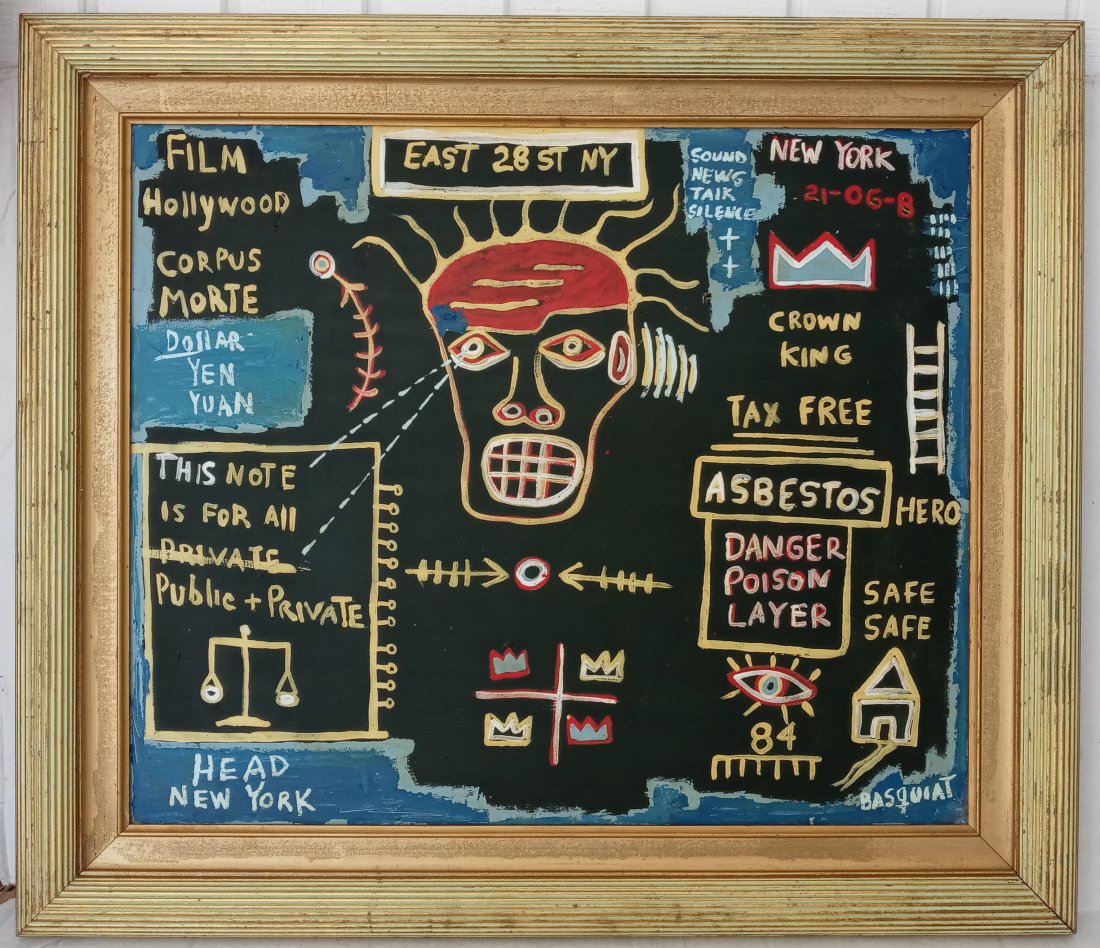 FILM
Hollywood
CORPUS
MORTE
Dollar
YEN
YUAN
THIS NOTE
IS FOR All
PRIVATE
Public + PRIVATE
HEAD
NEW YORK
EAST 28 ST NY
SOUND
NEWG
TAlK
SILENCE
NEW YORK
21-06-8
CROWN
KING
TAX FREE
ASBESTOS
HERO
DANGER
POISON
LAYER
SAFE
SAFE
84
BASQUIAT